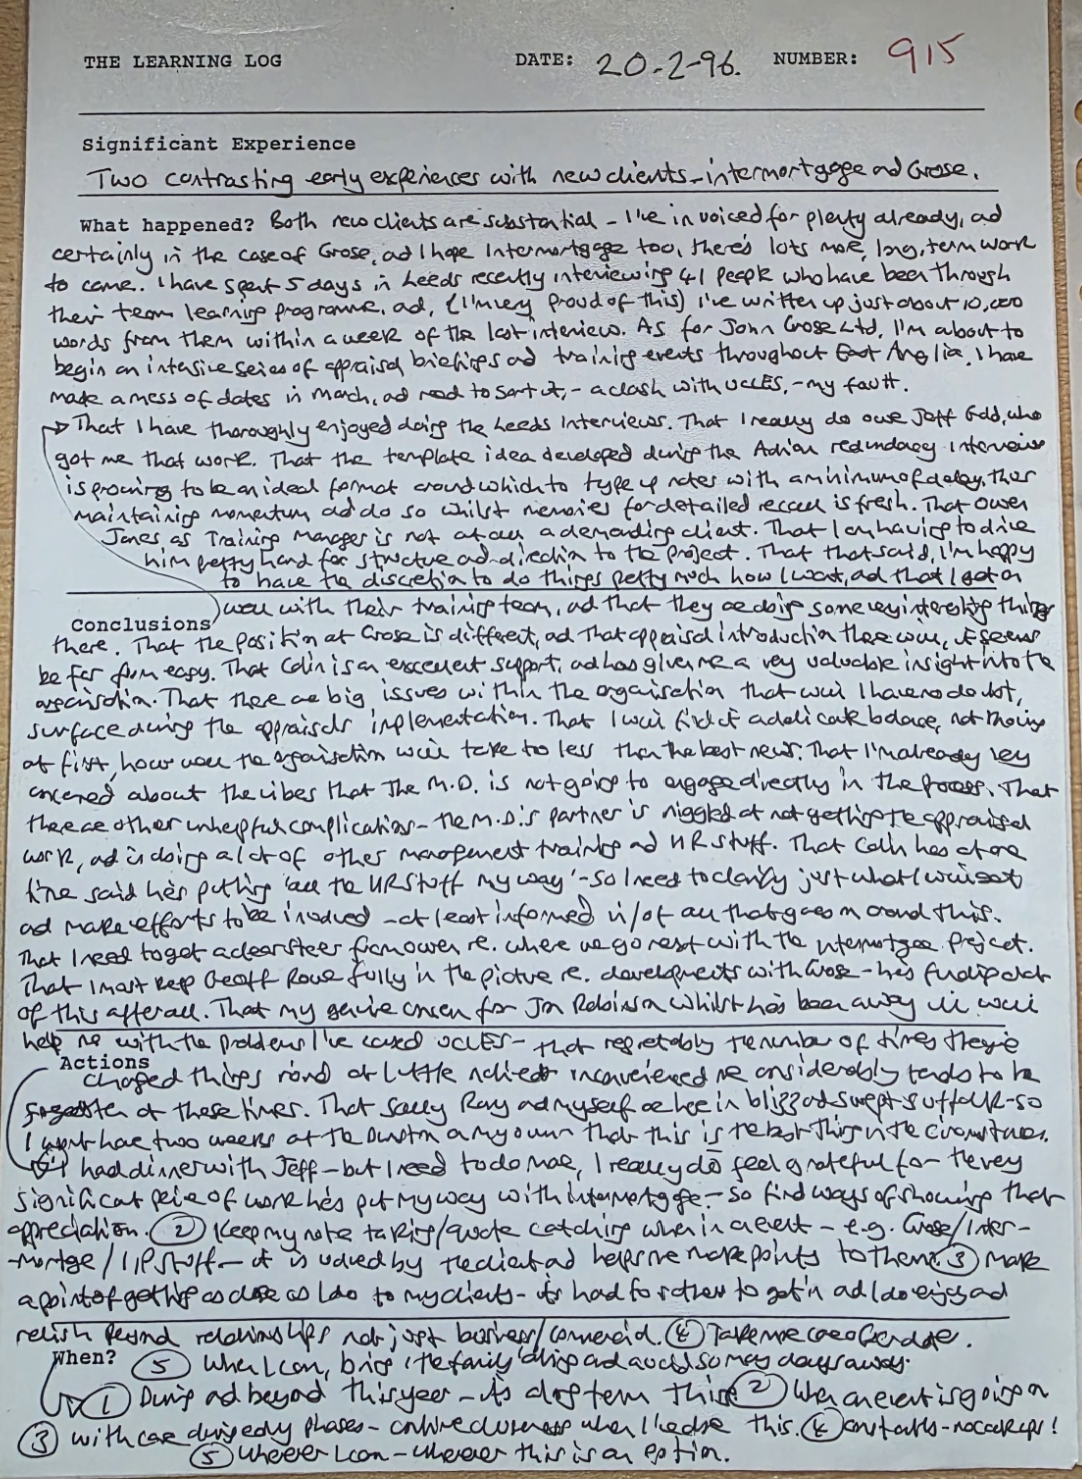 THE LEARNING LOG DATE: 20-2-96. NUMBER: 915
Significant Experience
Two contrasting early experiences with new clients - intermortgage and Grose.
What happened? Both new clients are substantial - I've invoiced for plenty already, and
certainly in the case of Grose, and I hope Intermortgage too, there's lots more, long, term work
to come. I have spent 5 days in Leeds recently interviewing 41 people who have been through
their team learning programme, and, (I'm very proud of this) I've written up just about 10,000
words from them within a week of the last interview. As for John Grose Ltd, I'm about to
begin an intensive series of appraisal briefings and training events throughout East Anglia. I have
made a mess of dates in March, and need to sort it, - a clash with UCLES, - my fault.
That I have thoroughly enjoyed doing the Leeds Interviews. That I really do owe Jeff Gold, who
got me that work. That the template idea developed during the Adrian redundancy interviews
is proving to be an ideal format around which to type up notes with a minimum of delay, thus
maintaining momentum and do so whilst memories for detailed recall is fresh. That Owen
Jones as Training Manager is not at all a demanding client. That I am having to drive
him pretty hard for structure and direction to the project. That that said, I'm happy
to have the discretion to do things pretty much how I want, and that I get on
well with their training team, and that they are doing some very interesting things
Conclusions
there. That the position at Grose is different, and that appraisal introduction there will, it seems
be far from easy. That Colin is an excellent support, and has given me a very valuable insight into the
organisation. That there are big issues within the organisation that will I have no doubt,
surface during the appraisals implementation. That I will find it a delicate balance, not knowing
at first, how well the organisation will take to less than the best news. That I'm already very
concerned about the vibes that the M.D. is not going to engage directly in the process. That
there are other unhelpful complications - the M.D.'s partner is niggled at not getting the appraisal
work, and is doing a lot of other management training and HR stuff. That Colin has at one
time said he's putting 'all the HR stuff my way' - so I need to clarify just what I will get
and make efforts to be involved - at least informed in/of all that goes on around this.
That I need to get a clear steer from Owen re. where we go next with the Intermortgage Project.
That I must keep Geoff Rowe fully in the picture re. developments with Grose - he's funding a lot
of this after all. That my genuine concern for Jon Robinson whilst he's been away ill will
help me with the problems I've caused UCLES - that regrettably the number of times they've
Actions
changed things round at little notice inconvenienced me considerably tends to be
forgotten at these times. That Sally Ray and myself are here in blizzard swept Suffolk - so
I won't have two weeks at the Dunston on my own that this is the best thing in the circumstances.
① I had dinner with Jeff - but I need to do more, I really do feel grateful for the very
significant piece of work he's put my way with Intermortgage - so find ways of showing that
appreciation. ② Keep my note taking/quote catching when in an event - e.g. Grose/Inter-
-mortge/IIP stuff - it is valued by the client and helps me make points to them. ③ Make
a point of getting as close as I do to my clients - it's hard for others to get in and I do enjoy and
relish personal relationships not just business/commercial. ④ Take more care of the dates.
When? ⑤ When I can, bring 'the family' along and avoid so many days away.
① During and beyond this year - it's a long term thing ② When an event is going on
③ with care during early phases - continue closeness when I've done this. ④ constantly - no cockups!
⑤ wherever I can - wherever this is an option.